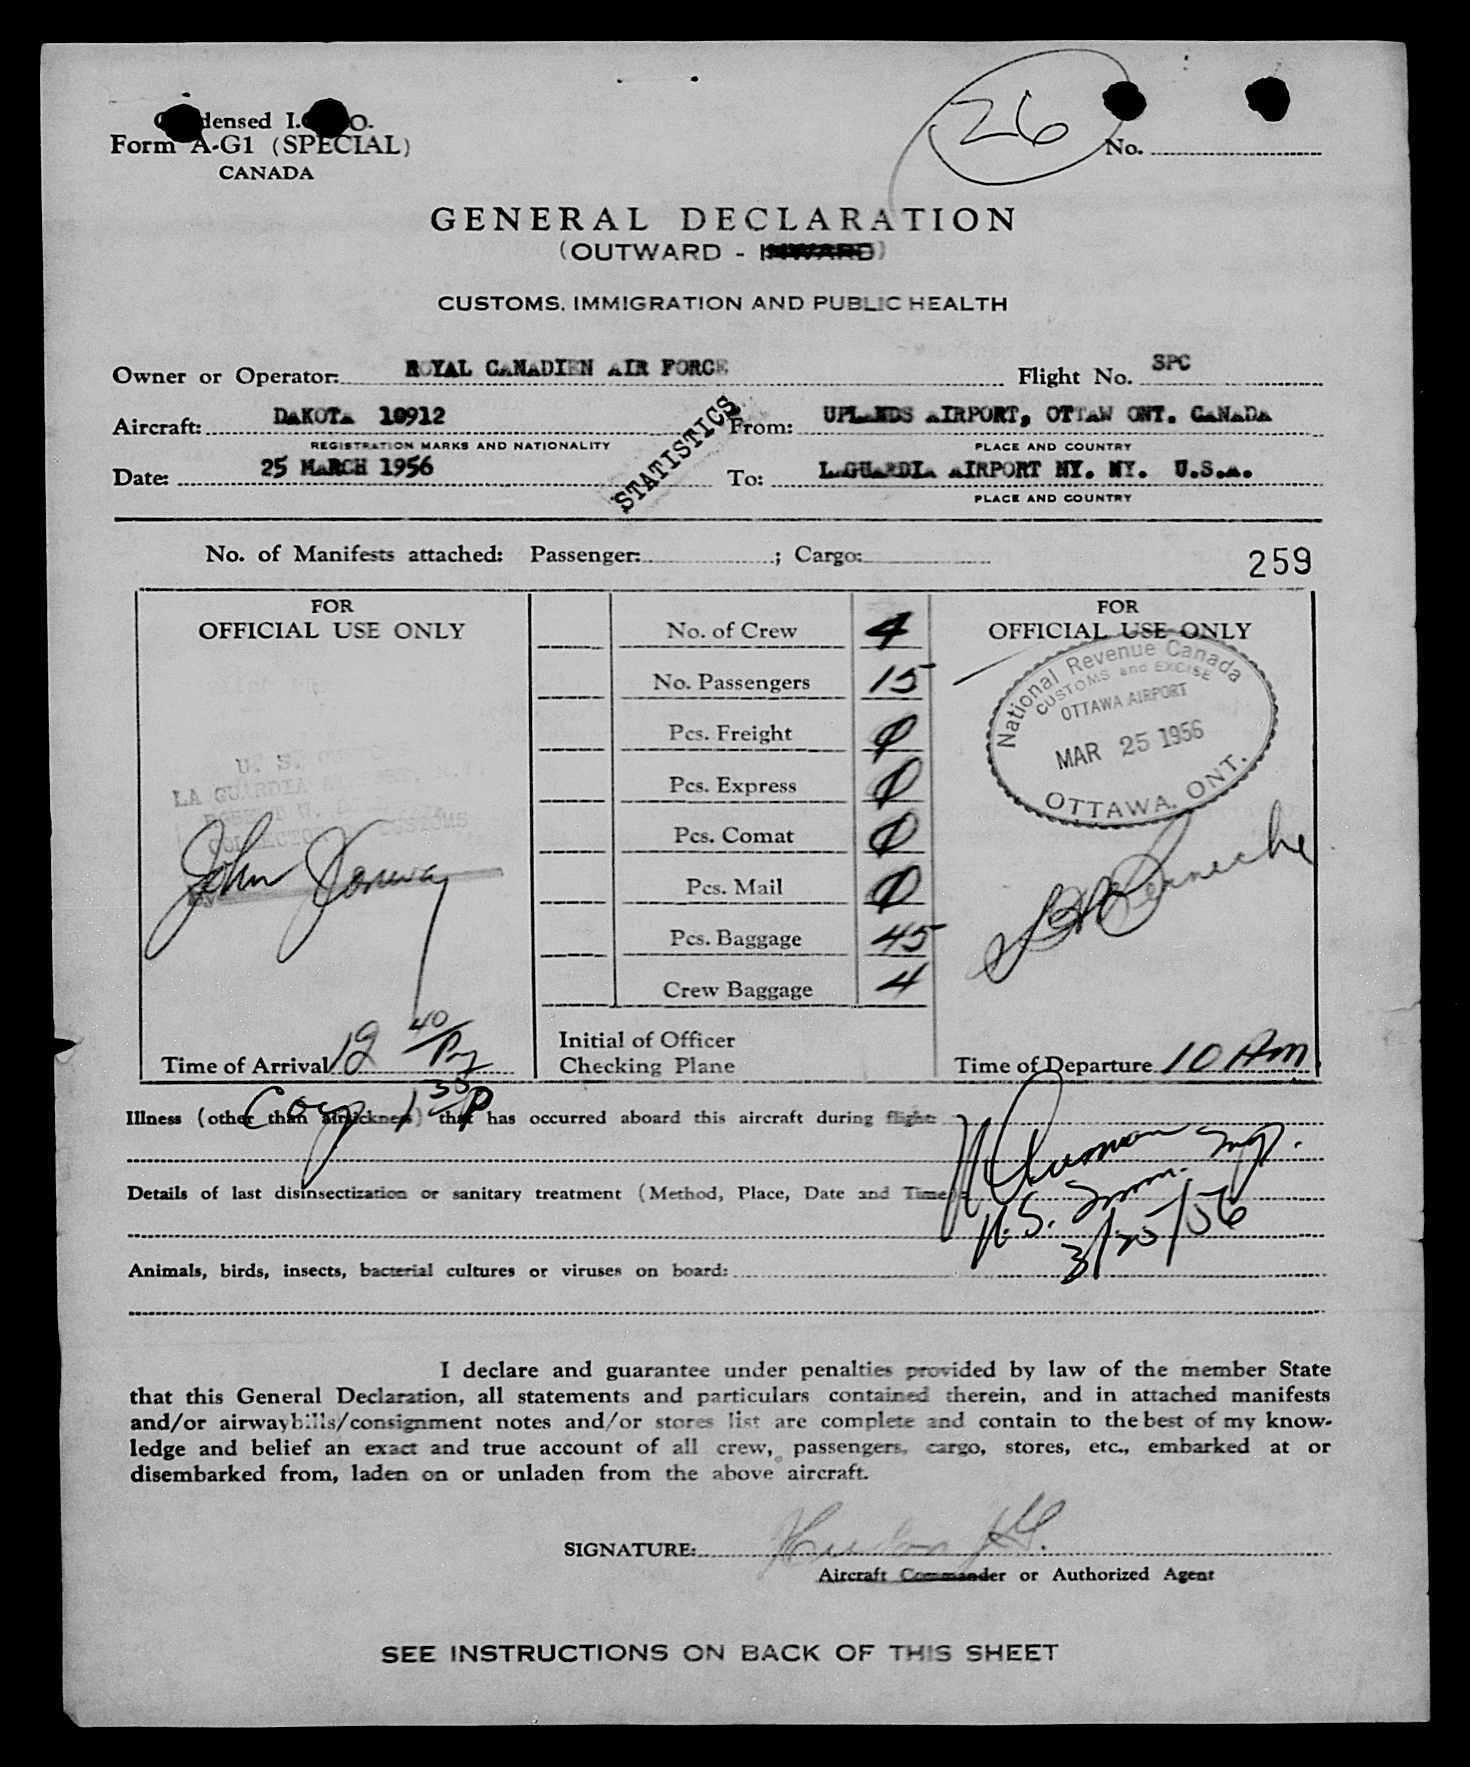 Condensed I.C.A.O.
Form A-G1 (SPECIAL)
CANADA
26
No.
GENERAL DECLARATION
(OUTWARD - INWARD)
CUSTOMS, IMMIGRATION AND PUBLIC HEALTH
Owner or Operator: ROYAL CANADIEN AIR FORCE Flight No. SPC
Aircraft: DAKOTA 10912 From: UPLANDS AIRPORT, OTTAW ONT. CANADA
REGISTRATION MARKS AND NATIONALITY PLACE AND COUNTRY
STATISTICS
Date: 25 MARCH 1956 To: LAGUARDIA AIRPORT NY. NY. U.S.A.
PLACE AND COUNTRY
No. of Manifests attached: Passenger: ; Cargo:
259
FOR
OFFICIAL USE ONLY
U. S.
LA GUARDIA
John
Time of Arrival 12 40/
No. of Crew 4
No. Passengers 15
Pcs. Freight 0
Pcs. Express 0
Pcs. Comat 0
Pcs. Mail 0
Pcs. Baggage 45
Crew Baggage 4
Initial of Officer
Checking Plane
FOR
OFFICIAL USE ONLY
National Revenue Canada
CUSTOMS and EXCISE
OTTAWA AIRPORT
MAR 25 1956
OTTAWA, ONT.
Time of Departure 10 AM
Illness (other than airsickness) that has occurred aboard this aircraft during flight:
Details of last disinsectization or sanitary treatment (Method, Place, Date and Time):
U.S. Imm.
3/25/56
Animals, birds, insects, bacterial cultures or viruses on board:
I declare and guarantee under penalties provided by law of the member State
that this General Declaration, all statements and particulars contained therein, and in attached manifests
and/or airwaybills/consignment notes and/or stores list are complete and contain to the best of my know-
ledge and belief an exact and true account of all crew, passengers, cargo, stores, etc., embarked at or
disembarked from, laden on or unladen from the above aircraft.
SIGNATURE:
Aircraft Commander or Authorized Agent
SEE INSTRUCTIONS ON BACK OF THIS SHEET